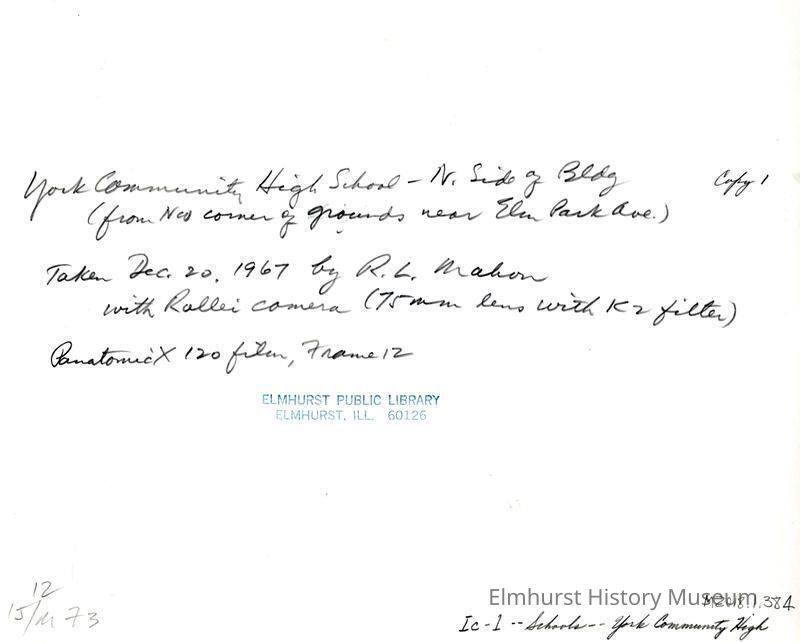 York Community High School - N. Side of Bldg Copy 1
(from NW corner of grounds near Elm Park Ave.)
Taken Dec. 20, 1967 by R. L. Mahon
with Rollei camera (75mm lens with K2 filter)
Panatomic X 120 film, Frame 12
ELMHURST PUBLIC LIBRARY
ELMHURST, ILL. 60126
12
15/M 73
Elmhurst History Museum
Ic-1 -- Schools -- York Community High